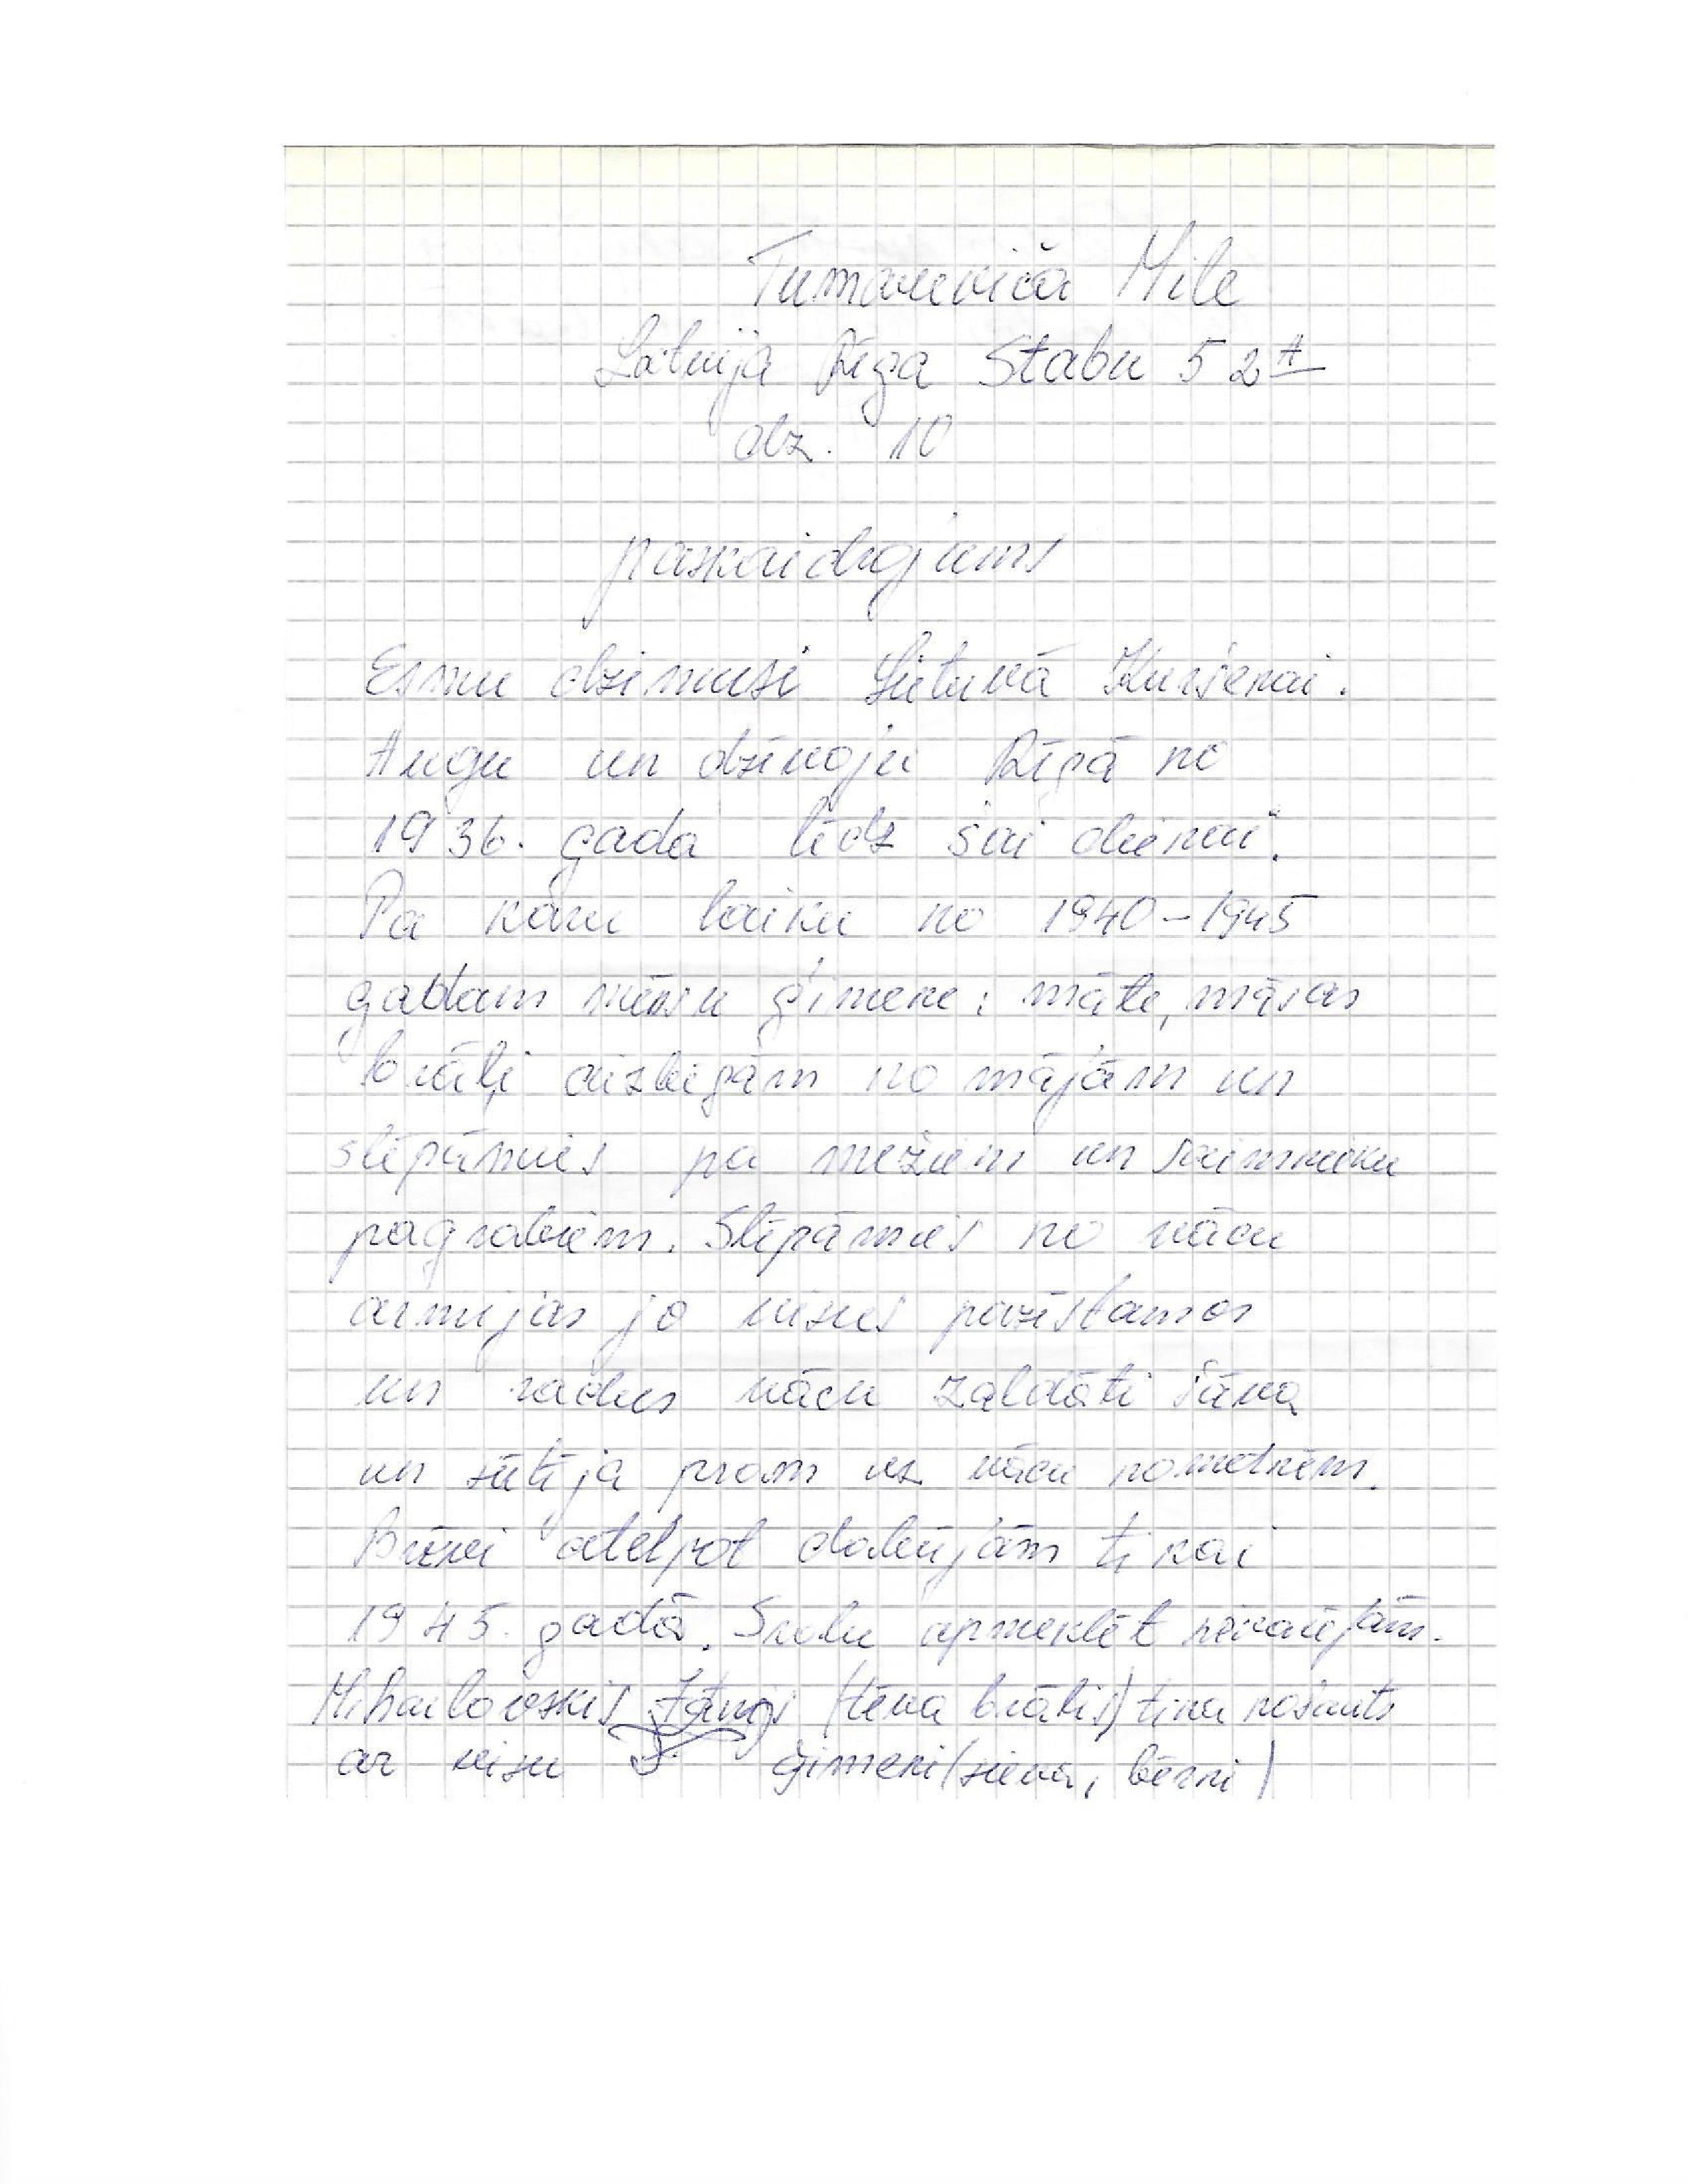 Tumaneviča Mile
Latvija Rīga Stabu 52A
dz. 10
paskaidrojums
Esmu dzimusi Lietuvā Kuršenai.
Augu un dzīvoju Rīgā no
1936. gada līdz šai dienai.
Pa karu laiku no 1940-1945
gadam mūsu ģimene: māte, māsas
brāļi aizbegām no mājām un
slēpāmies pa mežiem un saimnieku
pagrabiem. Slēpāmies no vācu
armijas jo visus pazīstamos
un radus vācu zaldāti šāva
un sūtīja prom uz vācu nometnēm.
Brīvi atelpot dabūjām tikai
1945. gadā. Skolu apmeklēt nevarējām.
Mihailovskis Jānis (tēva brālis) tika nošauts
ar visu ģimeni (sieva, bērni)